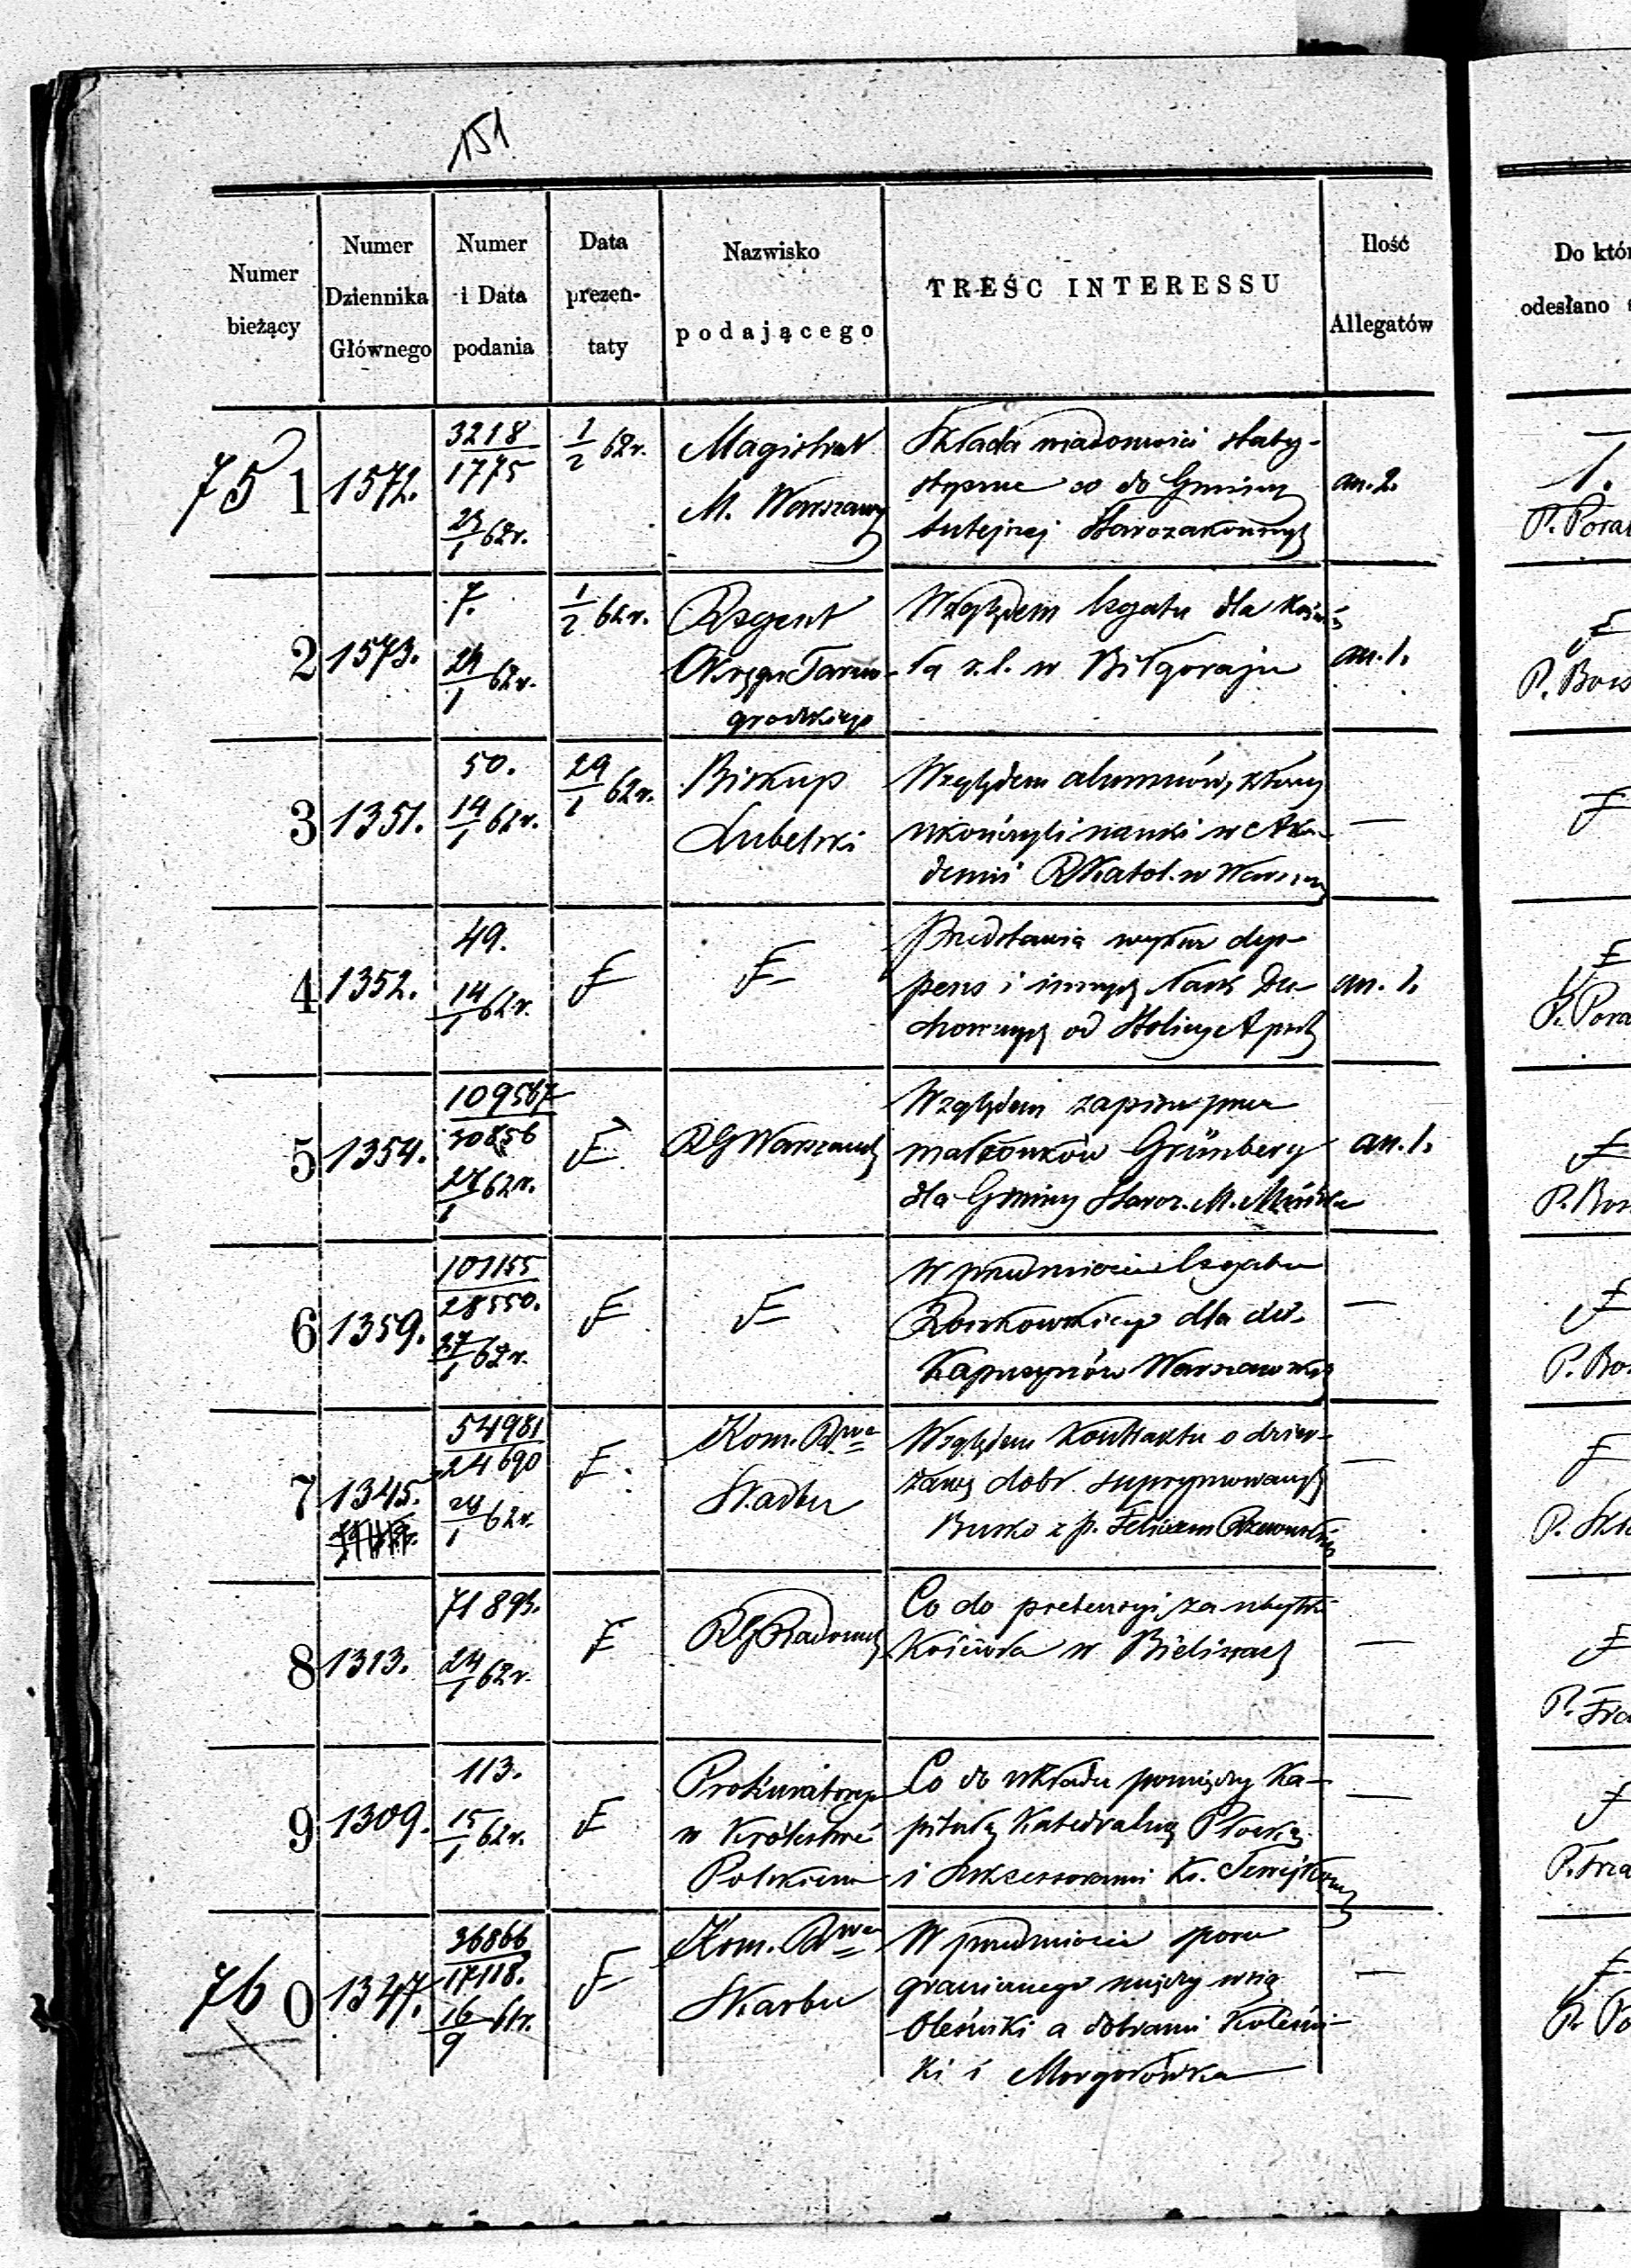 151
Numer bieżący
Numer Dziennika Głównego
Numer i Data podania
Data prezen-taty
Nazwisko podającego
TREŚC INTERESSU
Ilość Allegatów
Do któr
odesłano
751
1572.
3218
1775
1/2 62r.
Magistrat
M. Warszawy
Składa wiadomości staty-
styczne co do Gminy
tutejszej Starozakonnych
an. 2.
1.
2
1573.
7.
29/1 62r.
1/2 62r.
Rejent
Okręgu Tarno-
grodzkiego
Względem legatu dla Kościo-
ła r.l. w Biłgoraju
an. 1.
3
1351.
50.
14/1 62r.
29/1 62r.
Biskup
Lubelski
Względem alumnów, którzy
ukończyli nauki w Aka-
demii RKatol. w Warszawy
—
4
1352.
49.
14/1 62r.
Przedstawia wykaz dys-
pens i innych łask Du-
chownych od Stolicy Apost
an. 1.
5
1354.
109567
30856
62r.
RG Warszawsk
Względem zapisu przez
małżonków Grünberg
dla Gminy Staroz. M. Mińska
an. 1.
6
1359.
101155
28550.
27/1 62r.
W przedmiocie legatu
dla
Kapucynów Warszawskich
—
7
1345.
54981
24690
62r.
Kom. Rwa
Skarbu
Względem Kontraktu o dzier-
żawę dobr suprymowanych
Busko z p. Felixem Rzewuskim
—
8
1313.
71893.
24/1 62r.
RG Radomsk
Co do pretensyi za ubytki
Kościoła w Bielinach
—
9
1309.
113.
15/1 62r.
Prokuratorya
w Królestwie
Polskiem
Co do układu pomiędzy Ka-
pitułą Katedralną Płocką
i Sukcessorami Ks.
—
760
1347.
36866
17118.
16/9 61r.
Kom. Rwa
Skarbu
W przedmiocie sporu
granicznego między wsią
Oleśniki a dobrami
ki i Morgorówka
—